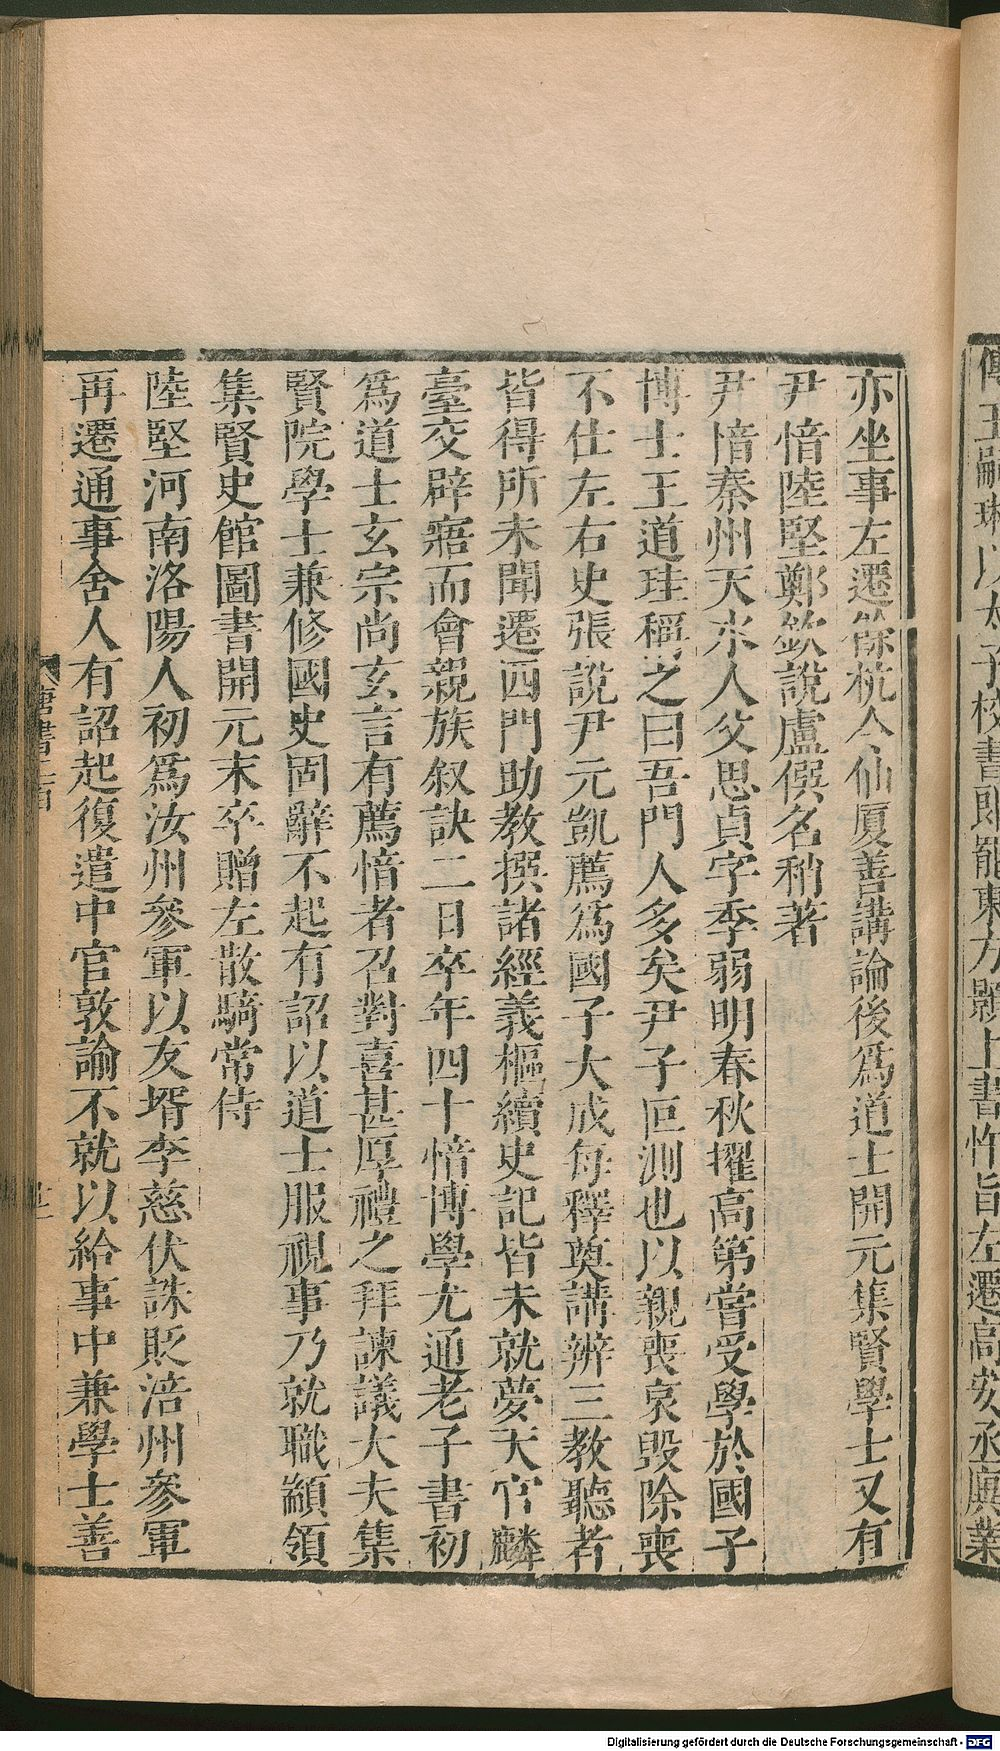 亦坐事左遷餘杭令仙廈善講論後爲道士開元集賢學士又有
尹愔陸堅鄭欽說盧僎名稍著
尹愔秦州天水人父思貞字季弱明春秋擢高第嘗受學於國子
博士王道珪稱之曰吾門人多矣尹子叵測也以親喪哀毀除喪
不仕左右史張說尹元凱薦爲國子大成每釋奠講辨三教聽者
皆得所未聞遷四門助教撰諸經義樞續史記皆未就夢天官麟
臺交辟寤而會親族叙訣二日卒年四十愔博學尤通老子書初
爲道士玄宗尚玄言有薦愔者召對喜甚厚禮之拜諫議大夫集
賢院學士兼修國史固辭不起有詔以道士服視事乃就職顓領
集賢史館圖書開元末卒贈左散騎常侍
陸堅河南洛陽人初爲汝州參軍以友壻李慈伏誅貶涪州參軍
再遷通事舍人有詔起復遣中官敦諭不就以給事中兼學士善
唐書二百
傅王嗣琳以太子校書郎罷東方顥上書忤旨左遷高安丞廙業
Digitalisierung gefördert durch die Deutsche Forschungsgemeinschaft - DFG